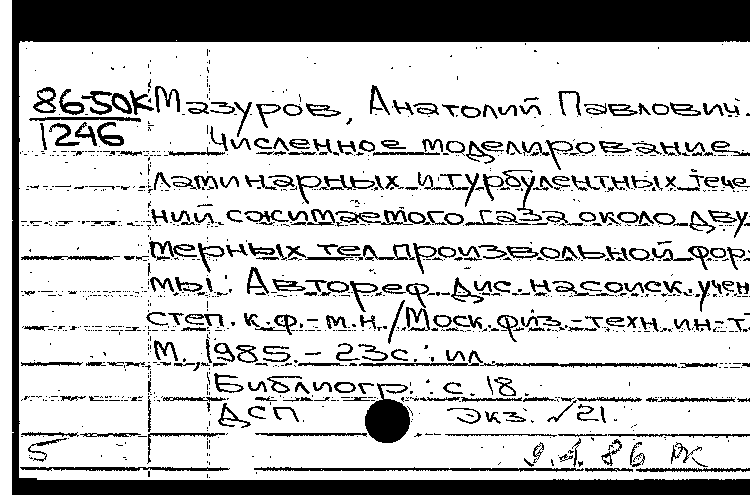 86-50К Мазуров, Анатолий Павлович.
1246 Численное моделирование
ламинарных и турбулентных тече
ний сжимаемого газа около дву
мерных тел произвольной фор
мы: Автореф. дис. на соиск. учен
степ. к.ф.-м.н. / Моск. физ.-техн. ин-т
М., 1985. - 23 с. : ил.
Библиогр.: с. 18.
ДСП Экз. √21.
5 9.4.86 РК